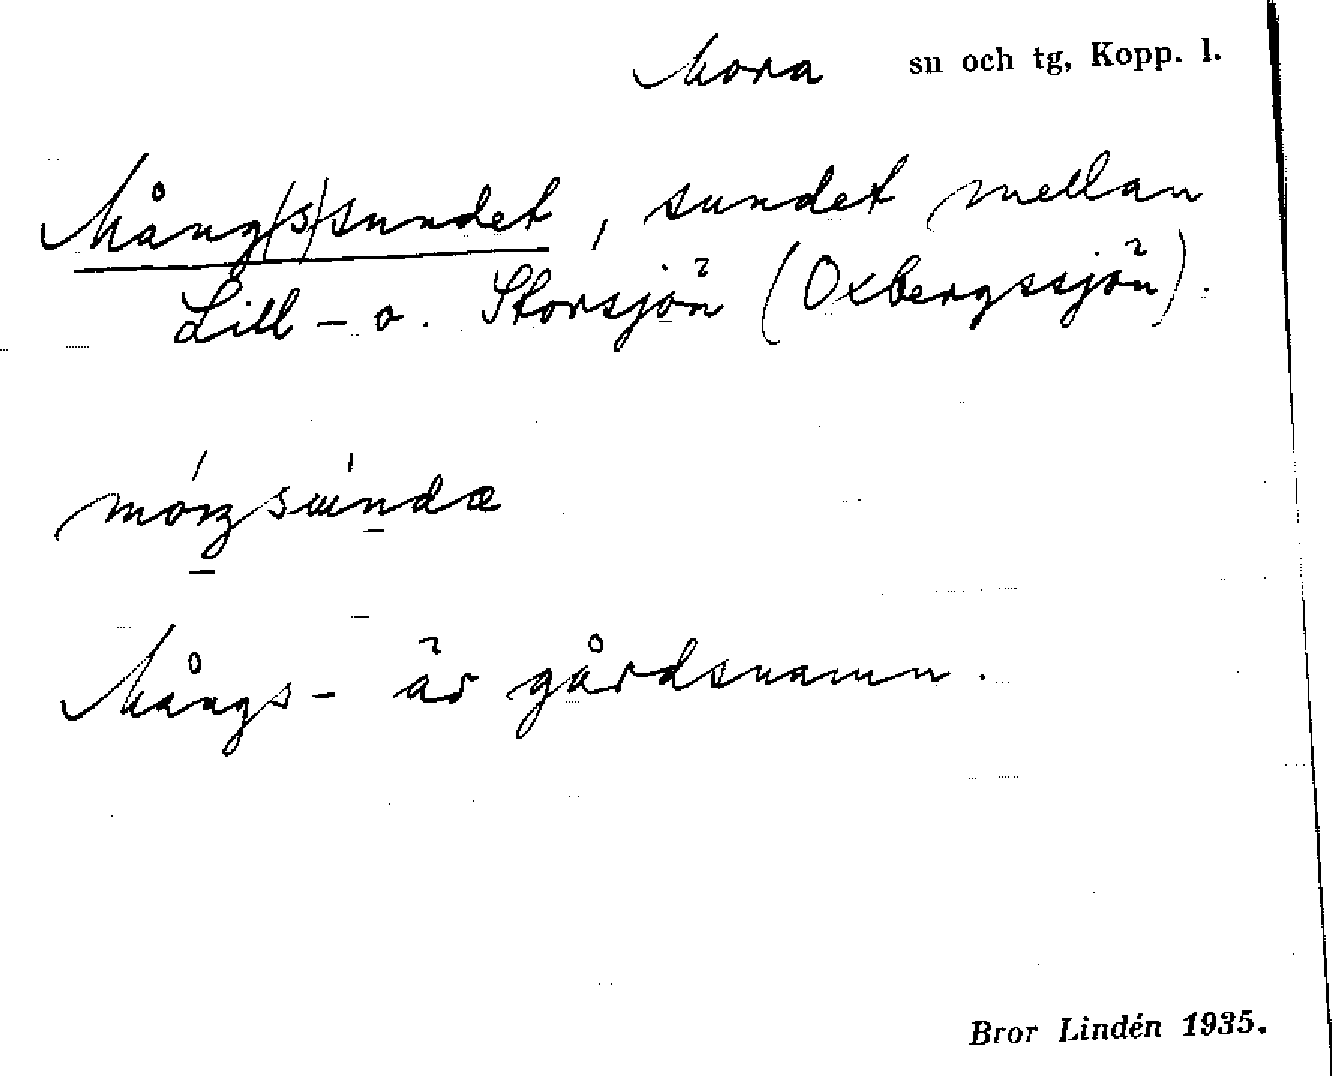 Mora sn och tg, Kopp. l.
Mång(s)sundet, sundet mellan
Lill- o. Storsjön (Oxbergssjön).
Mångs- är gårdsnamn.
Bror Lindén 1935.